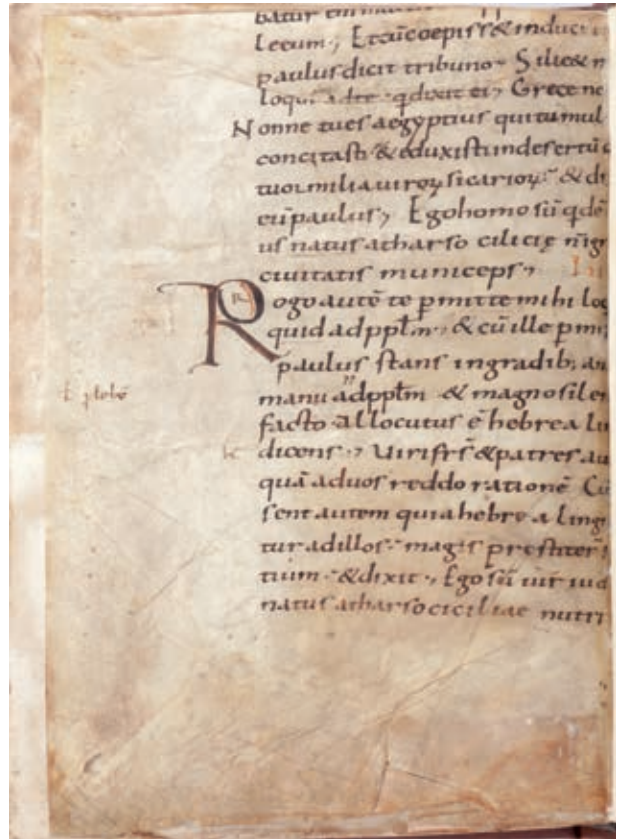 batur
lecum·, Et cū coepiss& induci
paulus dicit tribuno· Si lic& m
loqui ad te· qd ixit ei, Grece no
Nonne tu es aegyptius qui tumul
concitasti· & eduxisti in desertū
tuor milia viroꝝ sicarioꝝ· & di
eū paulus, Ego homo sū qdē
us natus a tharso cilicię ñ ig
civitatis municeps,
Rogo autē te pmitte mihi loq
qui ad ppłm·, & cū ille pmi
paulus stans in gradib; an
manu ad ppłm · & magno silen
ł plebē
facto· allocutus ē hebrea li
dicens·, Viri frs & patres au
quā ad vos reddo rationē Cū
sent autem quia hebrea ling
tur ad illos· magis prestiter
tium· & dixit, Ego sū vir iud
natus a tharso ciciliae nutri